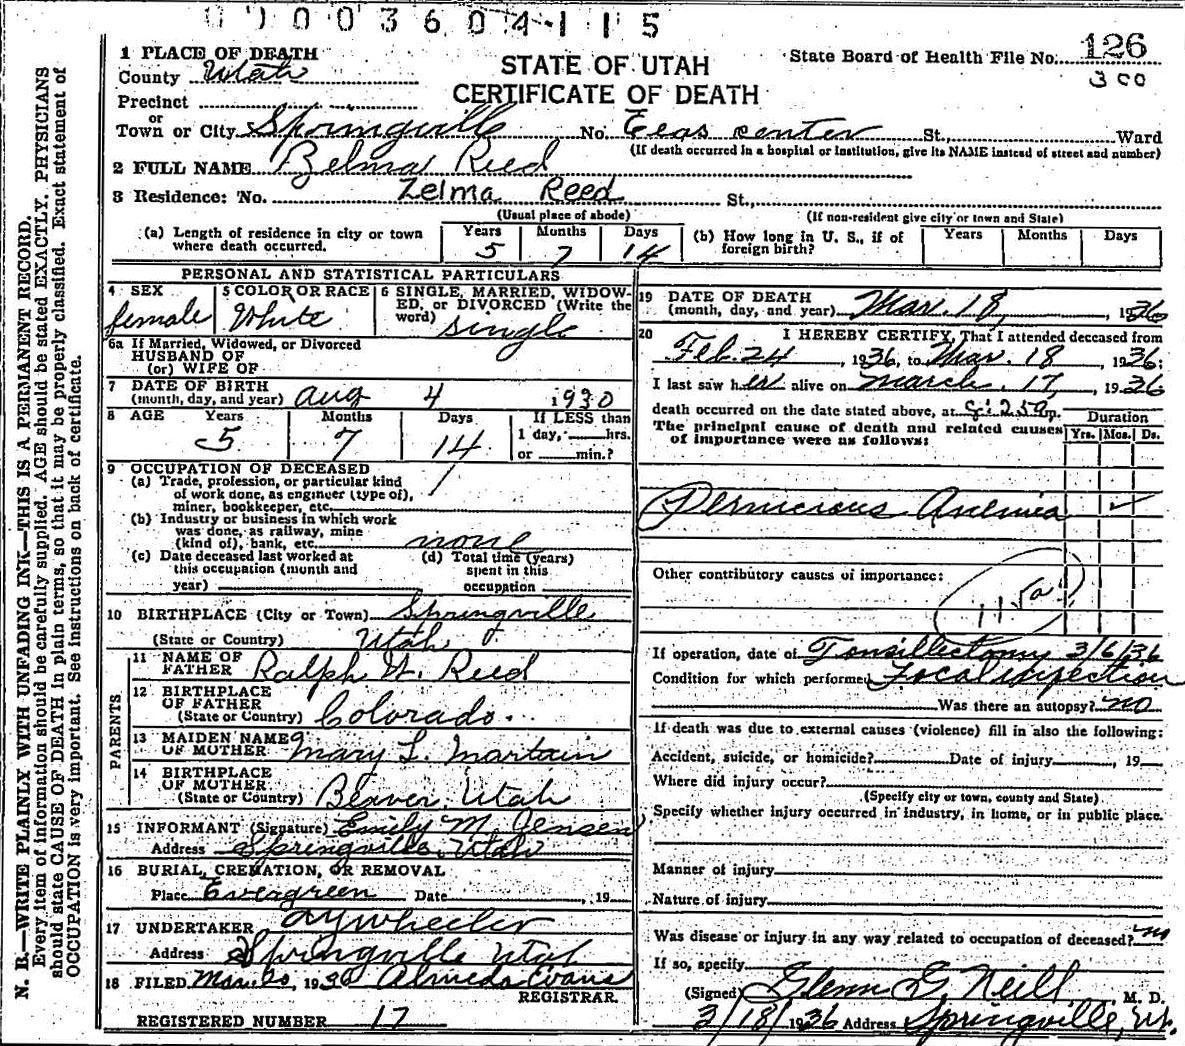 00003604115
1 PLACE OF DEATH
STATE OF UTAH
State Board of Health File No. 126
County Utah
300
CERTIFICATE OF DEATH
Precinct
or
Town or City Springville No. center St., Ward
(If death occurred in a hospital or institution, give its NAME instead of street and number)
2 FULL NAME Zelma Reed
3 Residence: No. Zelma Reed St.,
(Usual place of abode) (If non-resident give city or town and State)
(a) Length of residence in city or town where death occurred. Years 5 Months 7 Days 14
(b) How long in U. S., if of foreign birth? Years Months Days
PERSONAL AND STATISTICAL PARTICULARS
4 SEX female
5 COLOR OR RACE White
6 SINGLE, MARRIED, WIDOWED, or DIVORCED (Write the word) single
6a If Married, Widowed, or Divorced
HUSBAND OF
(or) WIFE OF
7 DATE OF BIRTH
(month, day, and year) Aug 4 1930
8 AGE Years 5 Months 7 Days 14 If LESS than
1 day, hrs.
or min.?
9 OCCUPATION OF DECEASED
(a) Trade, profession, or particular kind
of work done, as engineer (type of),
miner, bookkeeper, etc.
(b) Industry or business in which work
was done, as railway, mine
(kind of), bank, etc. none
(c) Date deceased last worked at
this occupation (month and
year)
(d) Total time (years)
spent in this
occupation
10 BIRTHPLACE (City or Town) Springville
(State or Country) Utah
PARENTS
11 NAME OF
FATHER Ralph W. Reed
12 BIRTHPLACE
OF FATHER
(State or Country) Colorado
13 MAIDEN NAME
OF MOTHER Mary L. Martain
14 BIRTHPLACE
OF MOTHER
(State or Country) Beaver, Utah
15 INFORMANT (Signature) Emily M. Jensen
Address Springville, Utah
16 BURIAL, CREMATION, OR REMOVAL
Place Evergreen Date , 19
17 UNDERTAKER A Y Wheeler
Address Springville Utah
18 FILED Mar. 20, 1936 Almeda Evans
REGISTRAR.
REGISTERED NUMBER 17
19 DATE OF DEATH
(month, day, and year) Mar. 18, 1936
20 I HEREBY CERTIFY, That I attended deceased from
Feb. 24, 1936, to Mar. 18, 1936;
I last saw her alive on March 17, 1936
death occurred on the date stated above, at
The principal cause of death and related causes
of importance were as follows:
Duration
Yrs. Mos. Ds.
Pernicious Anemia ✓
Other contributory causes of importance:
115a
If operation, date of Tonsillectomy 3/6/36
Condition for which performed Focal infection
Was there an autopsy? no
If death was due to external causes (violence) fill in also the following:
Accident, suicide, or homicide? Date of injury , 19
Where did injury occur?
(Specify city or town, county and State)
Specify whether injury occurred in industry, in home, or in public place.
Manner of injury
Nature of injury
Was disease or injury in any way related to occupation of deceased? no
If so, specify
(Signed) Glenn G. Neill, M. D.
3/18/1936 Address Springville, Ut.
N. B.—WRITE PLAINLY WITH UNFADING INK—THIS IS A PERMANENT RECORD.
Every item of information should be carefully supplied. AGE should be stated EXACTLY. PHYSICIANS
should state CAUSE OF DEATH in plain terms, so that it may be properly classified. Exact statement of
OCCUPATION is very important. See instructions on back of certificate.